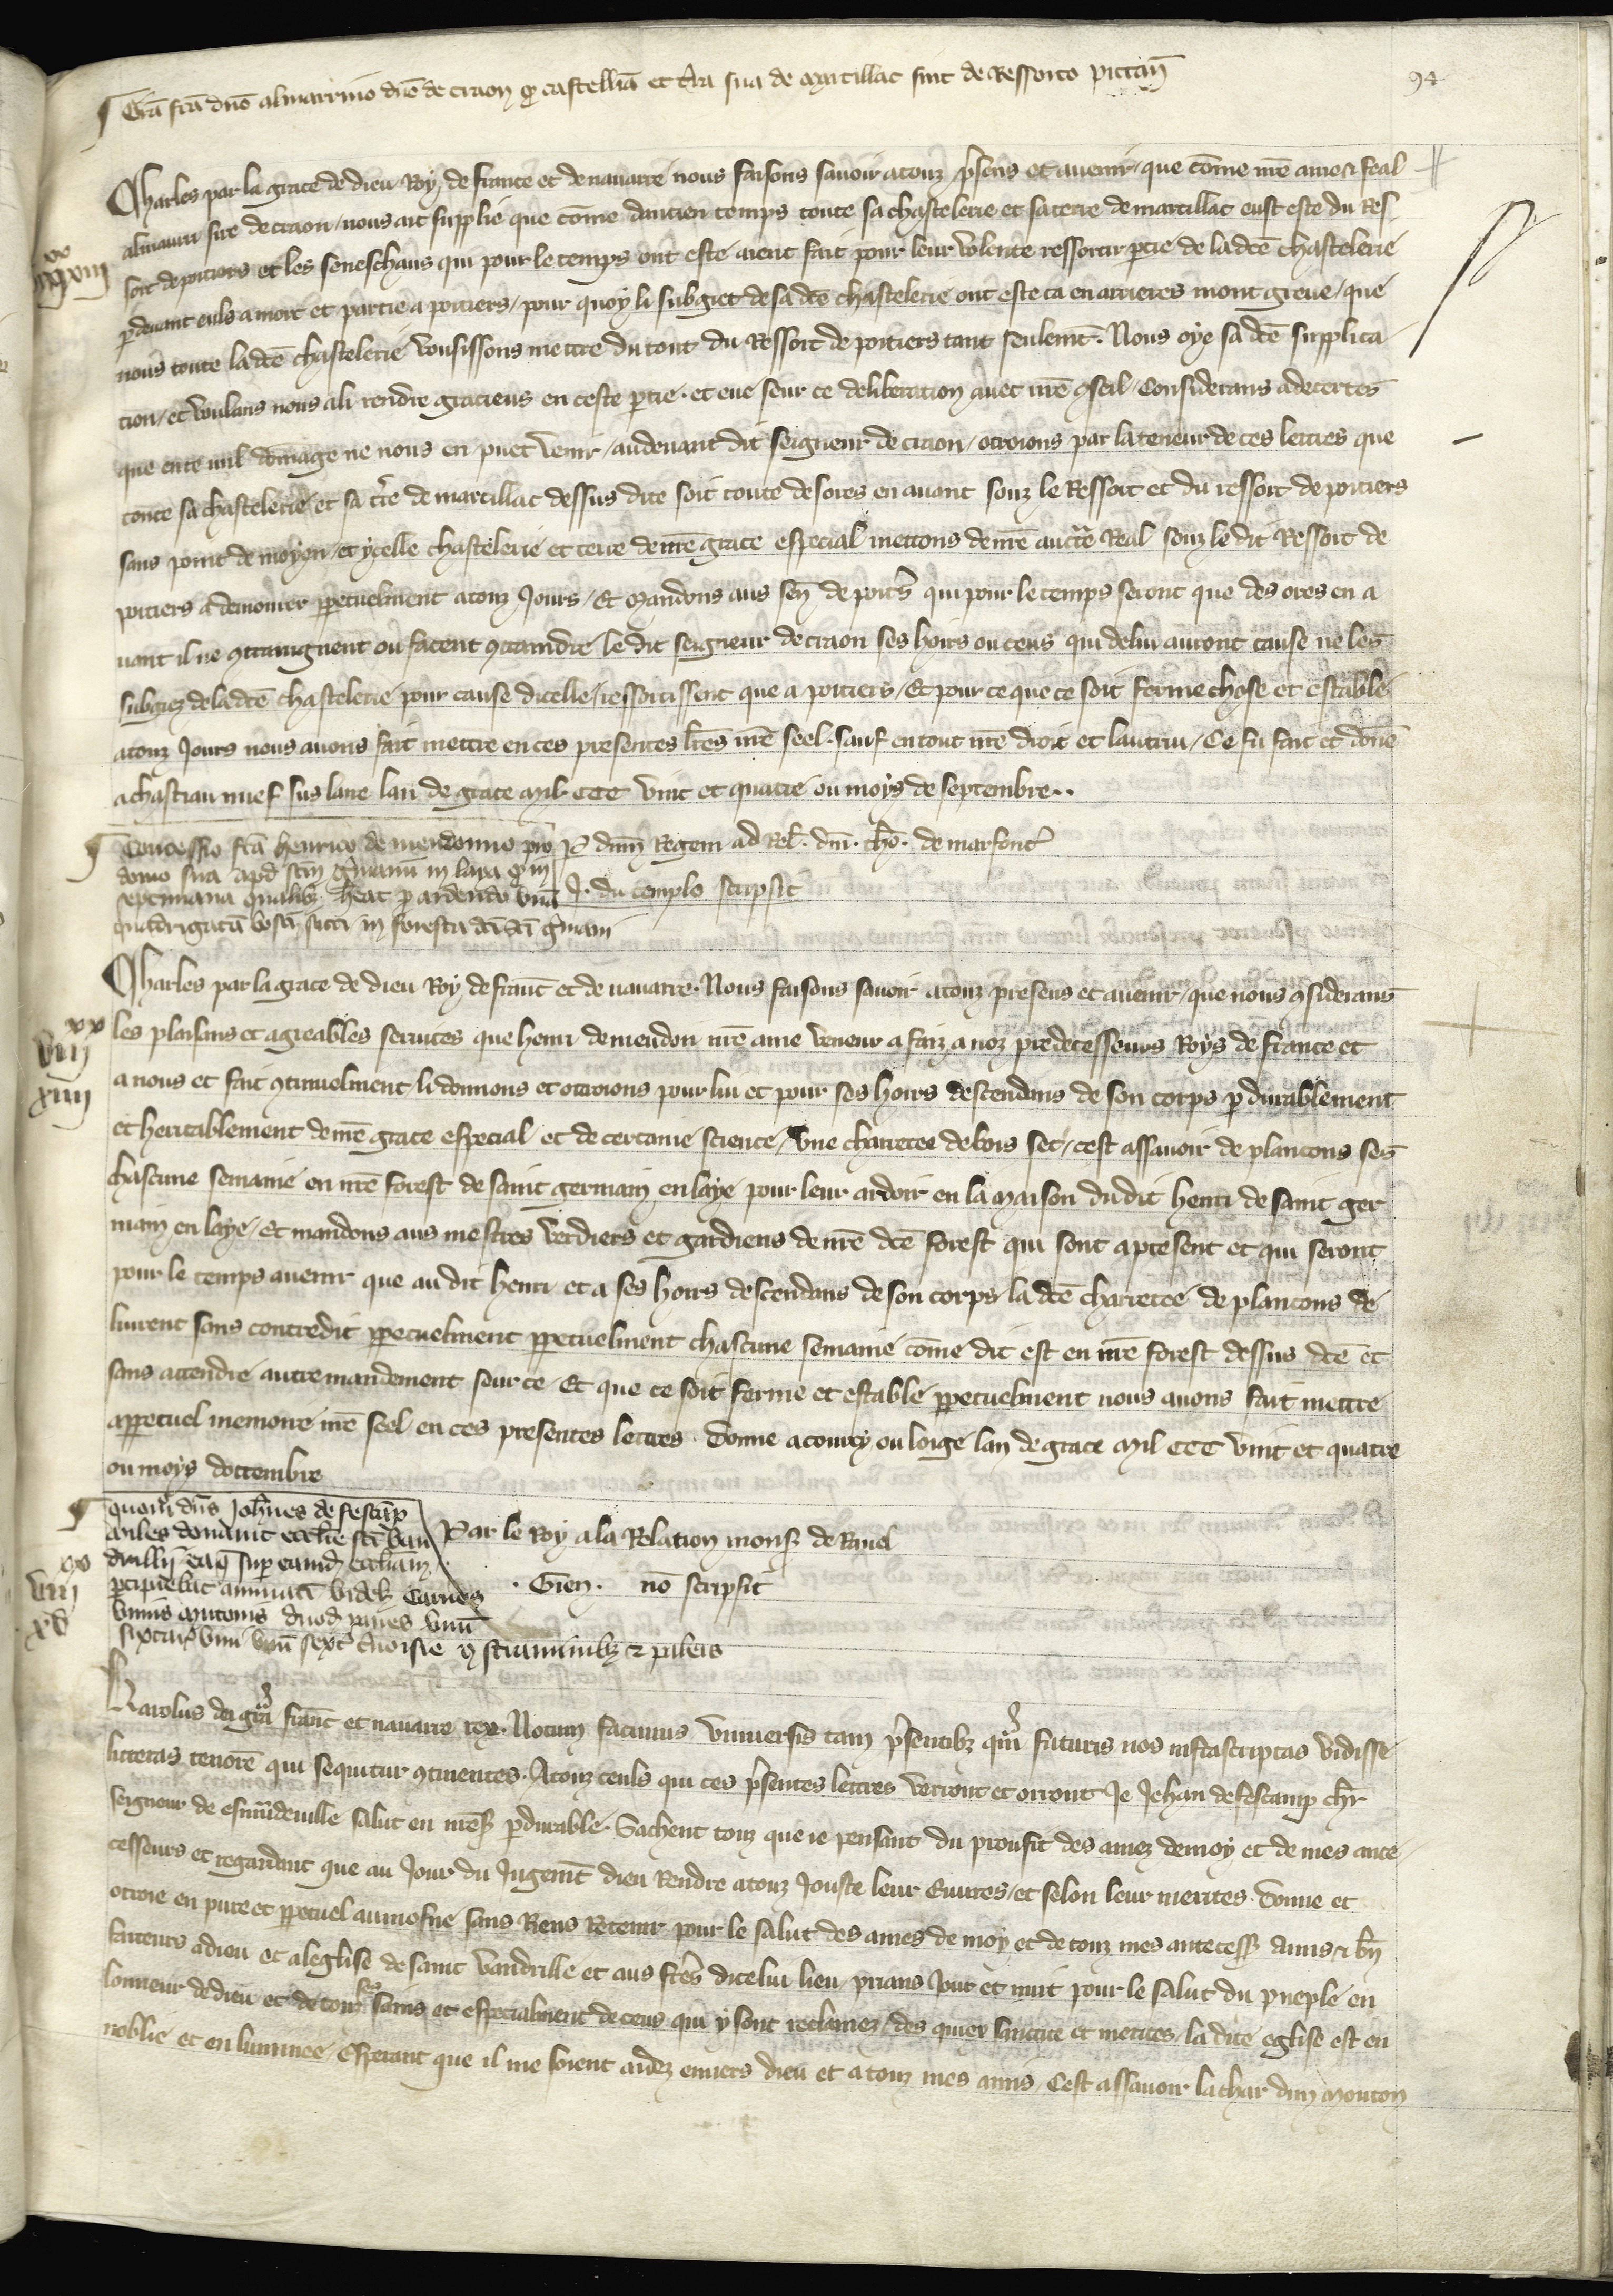 94
Grã fcã dño almarrino dño de craon q castellia et tr̃a sua de Marcillac sint de Ressorto pictañ
Charles par la grace de dieu Roy de france et de nauarre nous faisons sauoir a touz p̃sens et auenir / que cõme nr̃e ame & feal
almaurri sire de craon / nous ait supplie que cõme dancien temps toute sa chastelerie et sa terre de marcillac eust este du Res
sort de poitiers et les seneschaus qui pour le temps ont este aient fait pour leur volente ressortir ptie de la dcẽ chastelerie
pdeuant euls a mort et partie a poitiers / pour quoy li subgiet de sa dcẽ chastelerie ont este ca en arrieres mont greue / que
nous toute la dcẽ chastelerie vousissons mettre du tout du Ressort de poitiers tant seulemt̃. Nous oye sa dcẽ supplica
tion / et voulans nous a li rendre gracieus en ceste ptie. et eue seur ce deliberation auec nr̃e 9seil / Considerans adecertes
que ente nul dõmage ne nous en puet venir / au deuant dit seigneur de craon / otroions par la teneur de ces lettres que
toute sa chastelerie et sa tr̃e de marcillac dessus dite soit toute desores en auant souz le Ressort et du ressort de poitiers
sans point de moyen / et ycelle chastelerie et terre de nr̃e grace especial mettons de nr̃e auctr̃e Real souz le dit Ressort de
poitiers a demourer ppetuelment a touz Jours / Et Mandons aus señ de poit̃s qui pour le temps seront que des ores en a
uant il ne 9traingnent ou facent 9traindre le dit seigneur de craon ses hoirs ou ceus qui de lui auront cause ne les
subgiez de la dcẽ chastelerie pour cause dicelle / ressortissent que a poitiers / Et pour ce que ce soit ferme chose et estable
a touz Jours nous auons fait mettre en ces presentes lr̃es nr̃e seel. sauf en tout nr̃e droit et lautrui / Ce fu fait et dõne
a chastiau nuef sus laire lan de grace mil CCC vint et quatre ou moys de septembre..
xx
xiii
Concessio fcã henrico de meudonno pro
domo sua apd scm̃ g̃manũ in laya q in
septimana qualibz heat p ardendo vnã
quadrigatã bosci sicci in foresta dcĩ scĩ g̃mani
P dnm̃ Regem ad Rel̃. dnĩ. tho. de marfont̃
J. du templo scripsit
Charles par la grace de dieu Roy de franc̃ et de nauarre. Nous faisons sauoir a touz presens et auenir / que nous 9siderans
les plaisans et agreables seruices que henri de meudon nr̃e ame veneur a faiz a noz predecesseurs Roys de france et
a nous et fait 9tinuelment li donnons et otroions pour lui et pour ses hoirs descendans de son corps pdurablement
et heritablement de nr̃e grace especial et de certaine science / vne charretee de bois sec / cest assauoir de plancons ses
chascune semaine en nr̃e forest de saint germain en laye pour leur ardoir en la maison du dit henri de saint ger
main en laye / Et mandons aus mestres verdiers et gardiens de nr̃e dcẽ forest qui sont apresent et qui seront
pour le temps auenir que au dit henri et a ses hoirs descendans de son corps la dcẽ charretee de plancons de
liurent sans contredit ppetuelment ppetuelment chascune semaine cõme dit est en nr̃e forest dessus dcẽ et
sans attendre autre mandement seur ce / Et que ce soit ferme et estable ppetuelment nous auons fait mettre
appetuel memoire nr̃e seel en ces presentes lettres. donne a coucy ou loige lan de grace Mil CCC vint et quatre
ou moys doctembre
xx
viii
xiiii
quom̃ dns̃ Joh̃nes de festãp
miles donauit eccl̃ie scĩ van
drillị eaq̃ sup eand̃ eccl̃iam
pcipiebat annuatĩ videl̃ carnes
vnius Mutonis duod̃ panes vnũ
sextar̃ vini vnũ sext̃ ceruoisie cũ straminibz & palleis
Par le Roy a la Relation monsz de Riuel
. Gien. nõ scripsit
xx
viii
xv
Karolus dei gr̃a franc̃ et nauarre rex. Notum facimus vniuersis tam p̃sentibz q̃m futuris nos infrascriptas vidisse
litteras tenorẽ qui sequitur 9tinentes. A touz ceuls qui ces p̃sentes lettres verront et orront Je Jehan de fescamp chr̃
seigneur de esmudeuille salut en nr̃e s pdurable. Sachent touz que ie pensant du proufit des amez de moy et de mes ante
cesseurs et regardant que au Jour du Jugemt̃ dieu Rendre a touz Jouste leur euures / et selon leur merites. donne et
otroie en pure et ppetuel aumosne sans Riens Retenir pour le salut des ames de moy et de touz mes antecess̃ amis & bñ
faiteurs a dieu et a leglise de saint vandrille et aus fr̃es dicelui lieu / prians Jour et nuit pour le salut du pueple en
lonneur de dieu et de touz ses sains et especialment de ceus qui y sont reclamez / des quiex sainctite et merites la dite eglise est en
noblie et en luminee / Esperant que il me soient aidez enuers dieu et a touz mes amis / Cest assauoir la char dun mouton